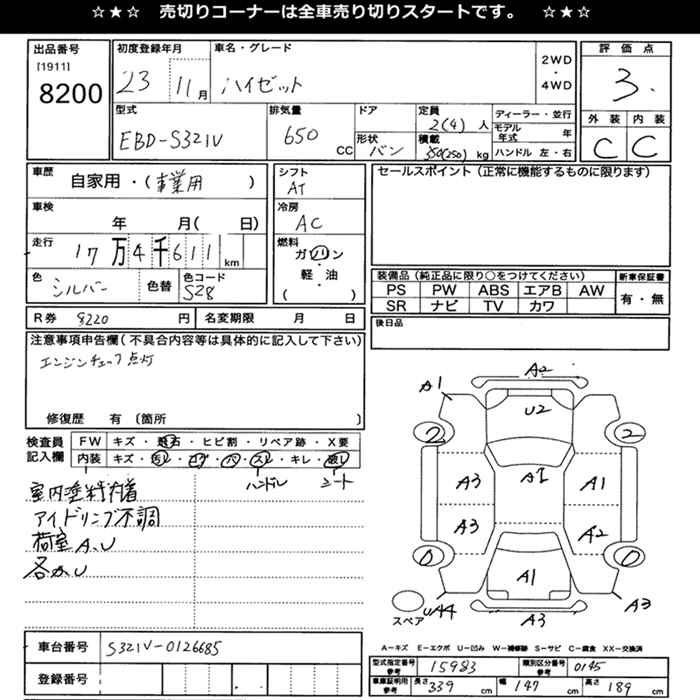 ☆★☆ 売切りコーナーは全車売り切りスタートです。 ☆★☆
出品番号 初度登録年月 車名・グレード 2WD・4WD 評価点
[1911] 8200 23 11月 ハイゼット 3.
型式 排気量 ドア 定員 ディーラー・並行 外装 内装
EBD-S321V 650 CC 2(4)人 モデル年式 年 C C
形状 バン 積載 350(250) kg ハンドル 左・右
車歴 自家用・(事業用) シフト AT セールスポイント (正常に機能するものに限ります)
車検 年 月( 日) 冷房 AC
走行 17万4千611 km 燃料 ガソリン・軽・油 ( )
色 シルバー 色替 色コード S28
装備品 (純正品に限り○をつけてください) 新車保証書
PS PW ABS エアB AW 有・無
SR ナビ TV カワ
R券 9220 円 名変期限 月 日 後日品
注意事項申告欄 (不具合内容等は具体的に記入して下さい)
エンジンチェック点灯
修復歴 有 〔箇所 〕
検査員記入欄 FW キズ・飛石・ヒビ割・リペア跡・X要
内装 キズ・汚レ・コゲ・穴・スレ・キレ・破レ
ハンドル シート
室内塗料付着
アイドリング不調
荷室 A、U
各カU
A1 A2
U2
2 2
A3 A1 A1
A3 A2
0 0
A1
スペア UA4 A3 A3
A-キズ E-エクボ U-凹み W-補修跡 S-サビ C-腐食 XX-交換済
車台番号 S321V-0126685
登録番号
型式指定番号 参考 15983 類別区分番号 参考 0145
車庫証明用 参考 長さ 339 cm 幅 147 cm 高さ 189 cm